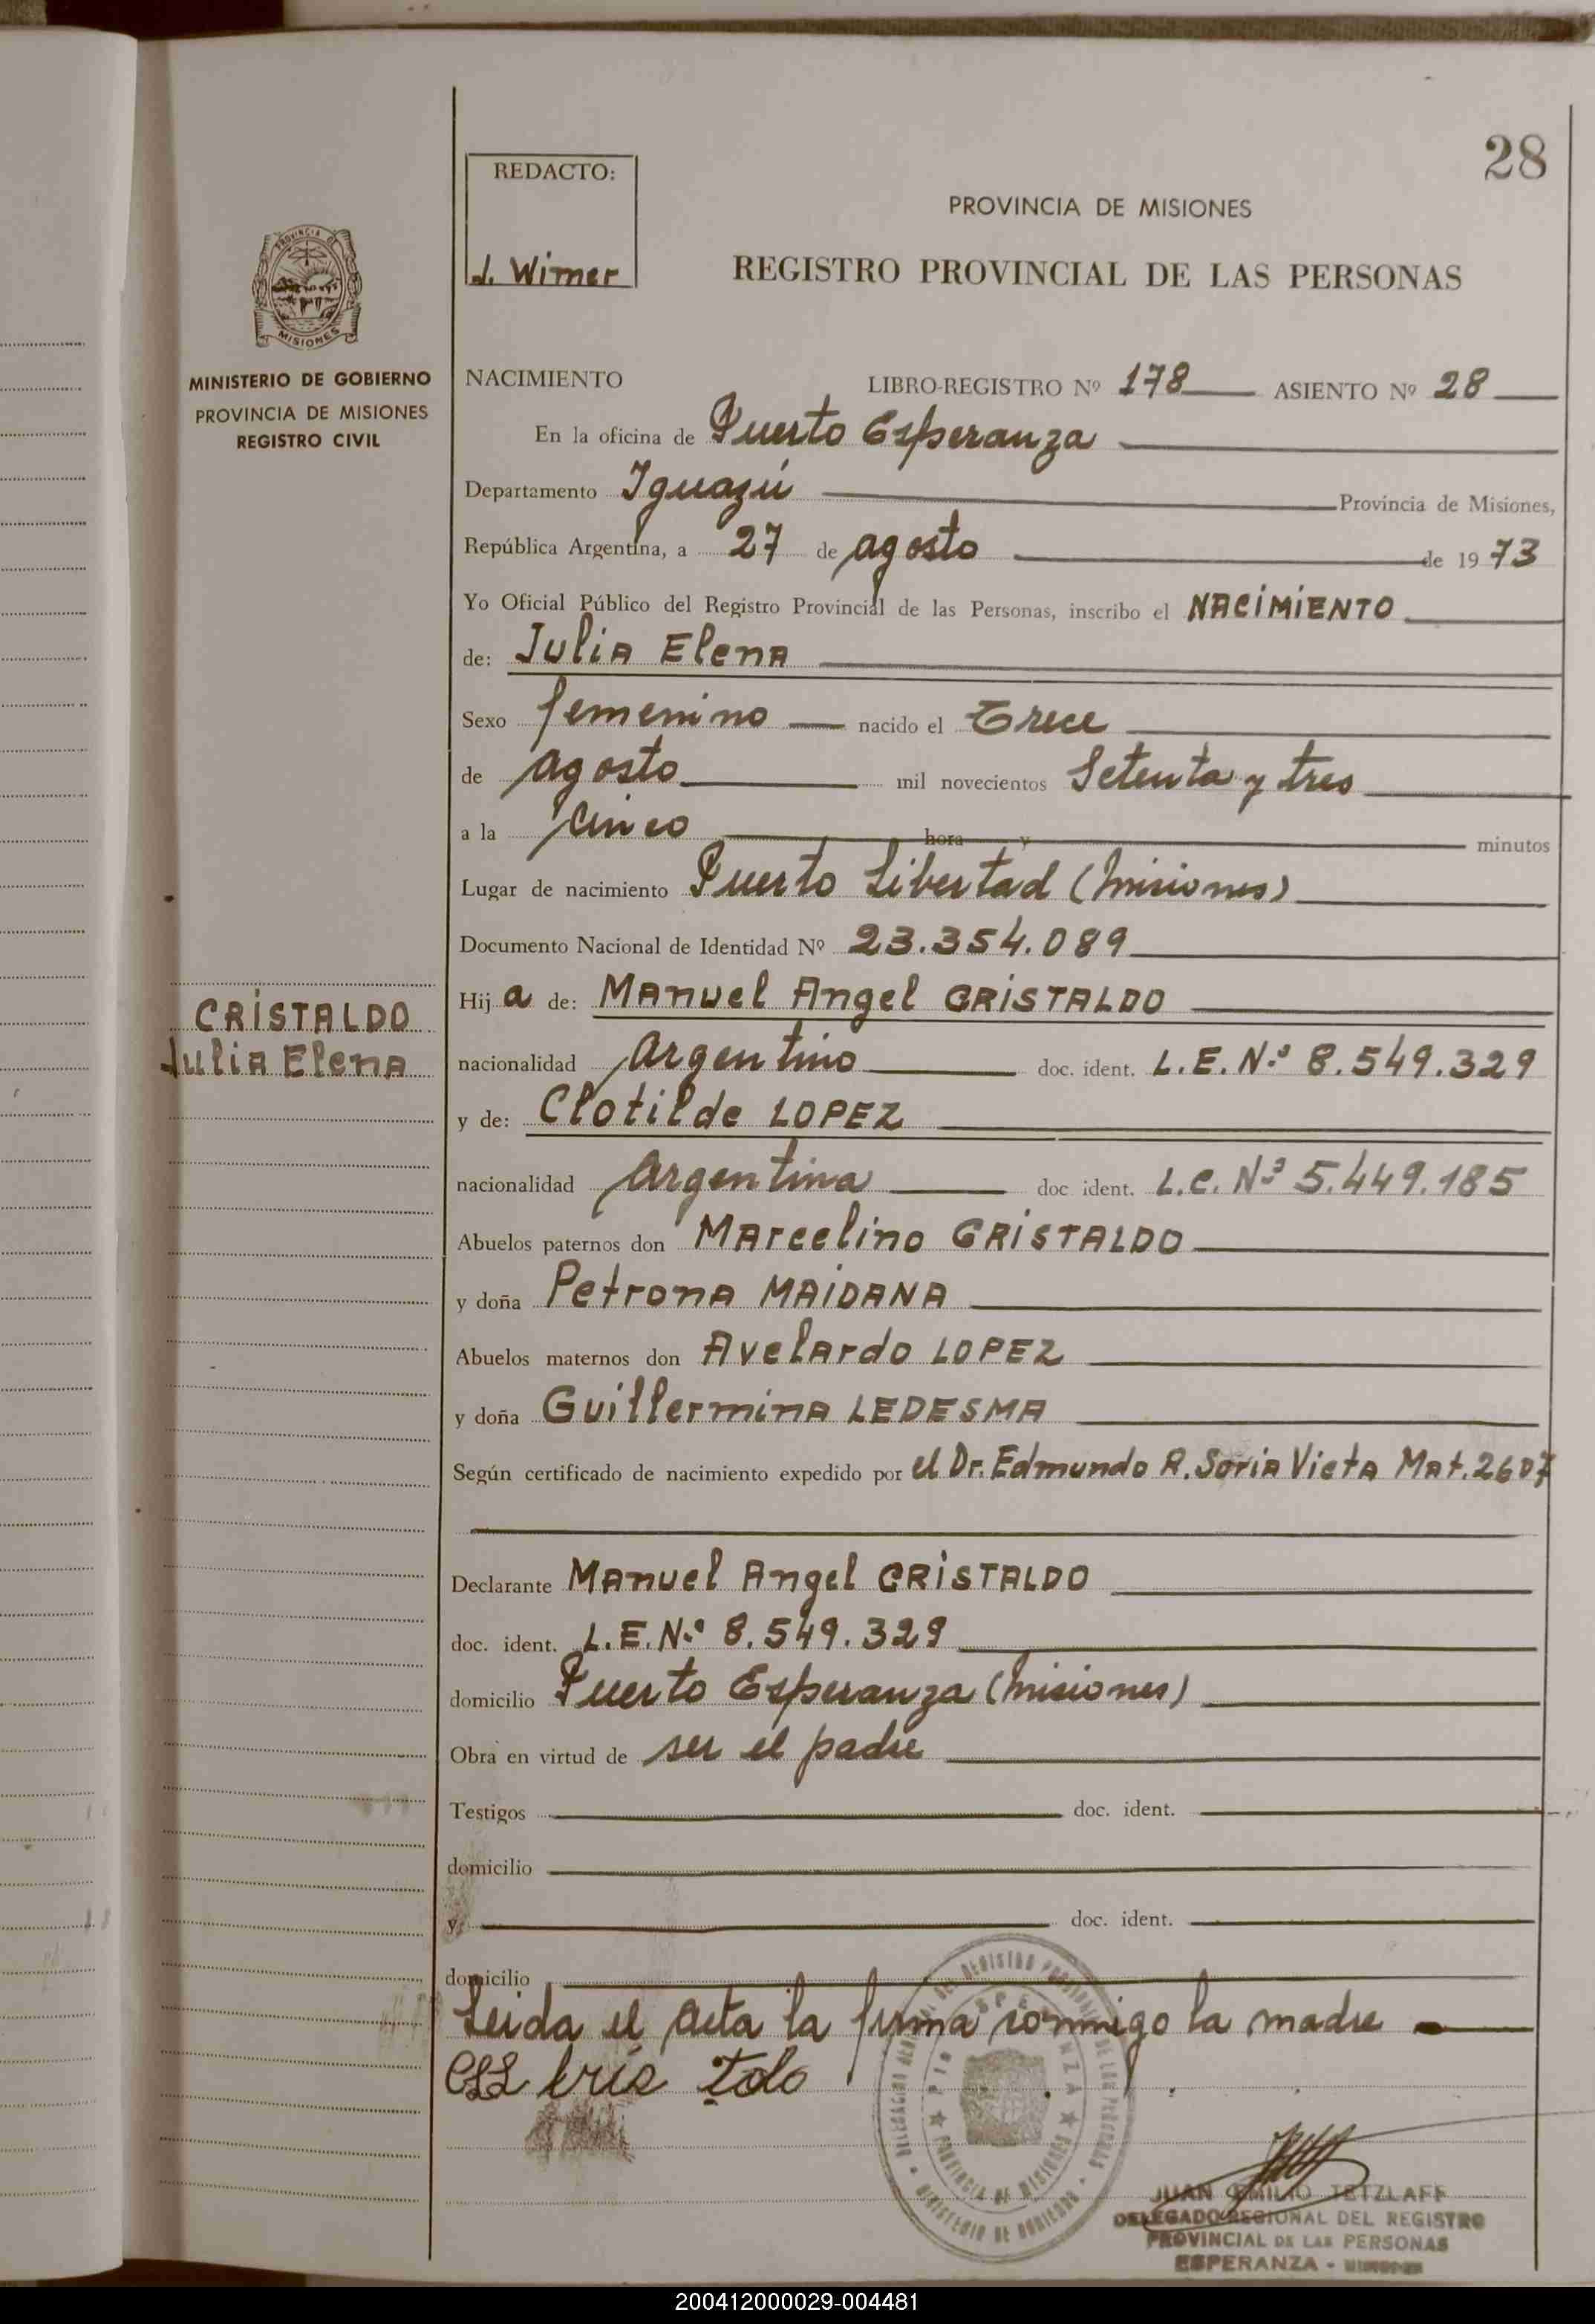 28
REDACTO:
J. Wimer
PROVINCIA DE MISIONES
REGISTRO PROVINCIAL DE LAS PERSONAS
PROVINCIA DE
MISIONES
MINISTERIO DE GOBIERNO
PROVINCIA DE MISIONES
REGISTRO CIVIL
NACIMIENTO LIBRO-REGISTRO Nº 178 ASIENTO Nº 28
En la oficina de Puerto Esperanza
Departamento Iguazú Provincia de Misiones,
República Argentina, a 27 de agosto de 1973
Yo Oficial Público del Registro Provincial de las Personas, inscribo el NACIMIENTO
de: Julia Elena
Sexo femenino nacido el Trece
de agosto mil novecientos Setenta y tres
a la cinco hora y minutos
Lugar de nacimiento Puerto Libertad (Misiones)
Documento Nacional de Identidad Nº 23.354.089
CRISTALDO
Julia Elena
Hija de: Manuel Angel CRISTALDO
nacionalidad Argentino doc. ident. L.E. N.º 8.549.329
y de: Clotilde LOPEZ
nacionalidad Argentina doc ident. L.C. Nº 5.449.185
Abuelos paternos don Marcelino CRISTALDO
y doña Petrona MAIDANA
Abuelos maternos don Avelardo LOPEZ
y doña Guillermina LEDESMA
Según certificado de nacimiento expedido por el Dr. Edmundo R. Soria Vieta Mat. 2607
Declarante Manuel Angel CRISTALDO
doc. ident. L.E. N.º 8.549.329
domicilio Puerto Esperanza (Misiones)
Obra en virtud de ser el padre
Testigos doc. ident.
domicilio
y doc. ident.
domicilio
Leida el acta la firma conmigo la madre
JUAN EMILIO TETZLAFF
DELEGADO REGIONAL DEL REGISTRO
PROVINCIAL DE LAS PERSONAS
ESPERANZA - MISIONES
200412000029-004481